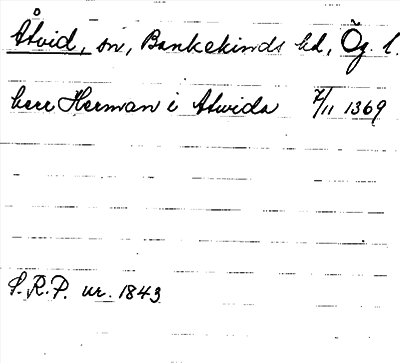 Åtvid, sn, Bankekinds hd, Ög. l.
herr Herman i Atwida 7/11 1369
S.R.P. nr. 1843